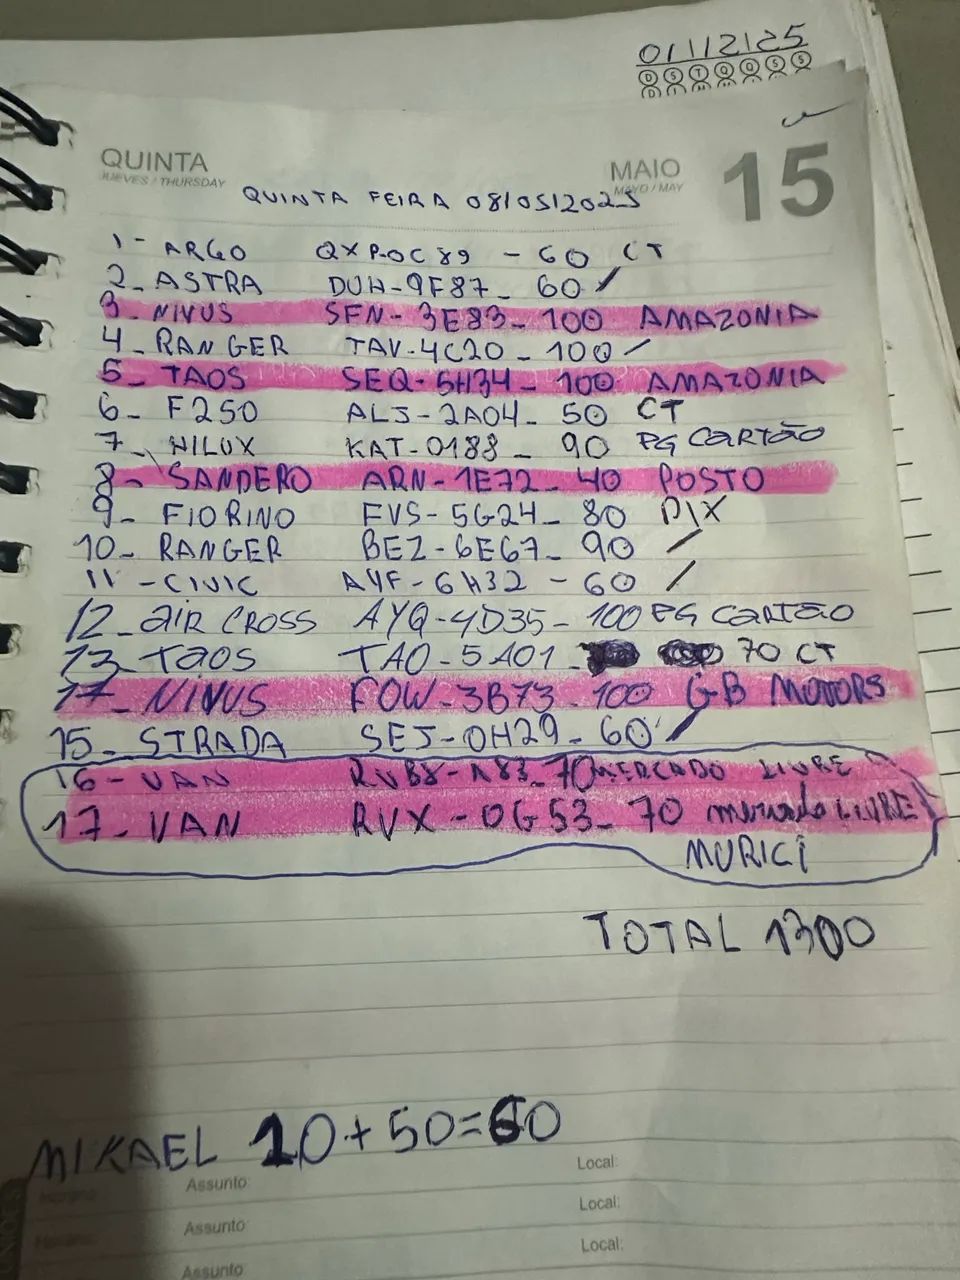 01/12/25
D S T Q Q S S
QUINTA
JUEVES / THURSDAY
MAIO
MAYO / MAY
15
QUINTA FEIRA 08/05/2025
1- ARGO QXP-0C89 - 60 CT
2- ASTRA DUH-9F87- 60 /
3- NIVUS SFN-3E83- 100 AMAZONIA
4- RANGER TAV-4C20- 100 /
5- TAOS SEQ-5H34- 100 AMAZONIA
6- F250 ALJ-2A04- 50 CT
7- HILUX KAT-0188 90 PG CARTÃO
8- SANDERO ARN-1E72- 40 POSTO
9- FIORINO FVS-5G24- 80 PIX
10- RANGER BEZ-6E67- 90 /
11- CIVIC AYF-6H32 - 60 /
12- AIR CROSS AYQ-4D35- 100 PG CARTÃO
13- TAOS TAO-5A01- 70 CT
17- NIVUS FOW-3B73- 100 GB MOTORS
15- STRADA SEJ-0H29- 60 /
16- VAN 70 MERCADO LIVRE
17- VAN RVX-0G53- 70 mercado LIVRE
MURICI
TOTAL 1300
MIKAEL 10+50=60
Local:
Assunto:
Local:
Assunto:
Local:
Assunto